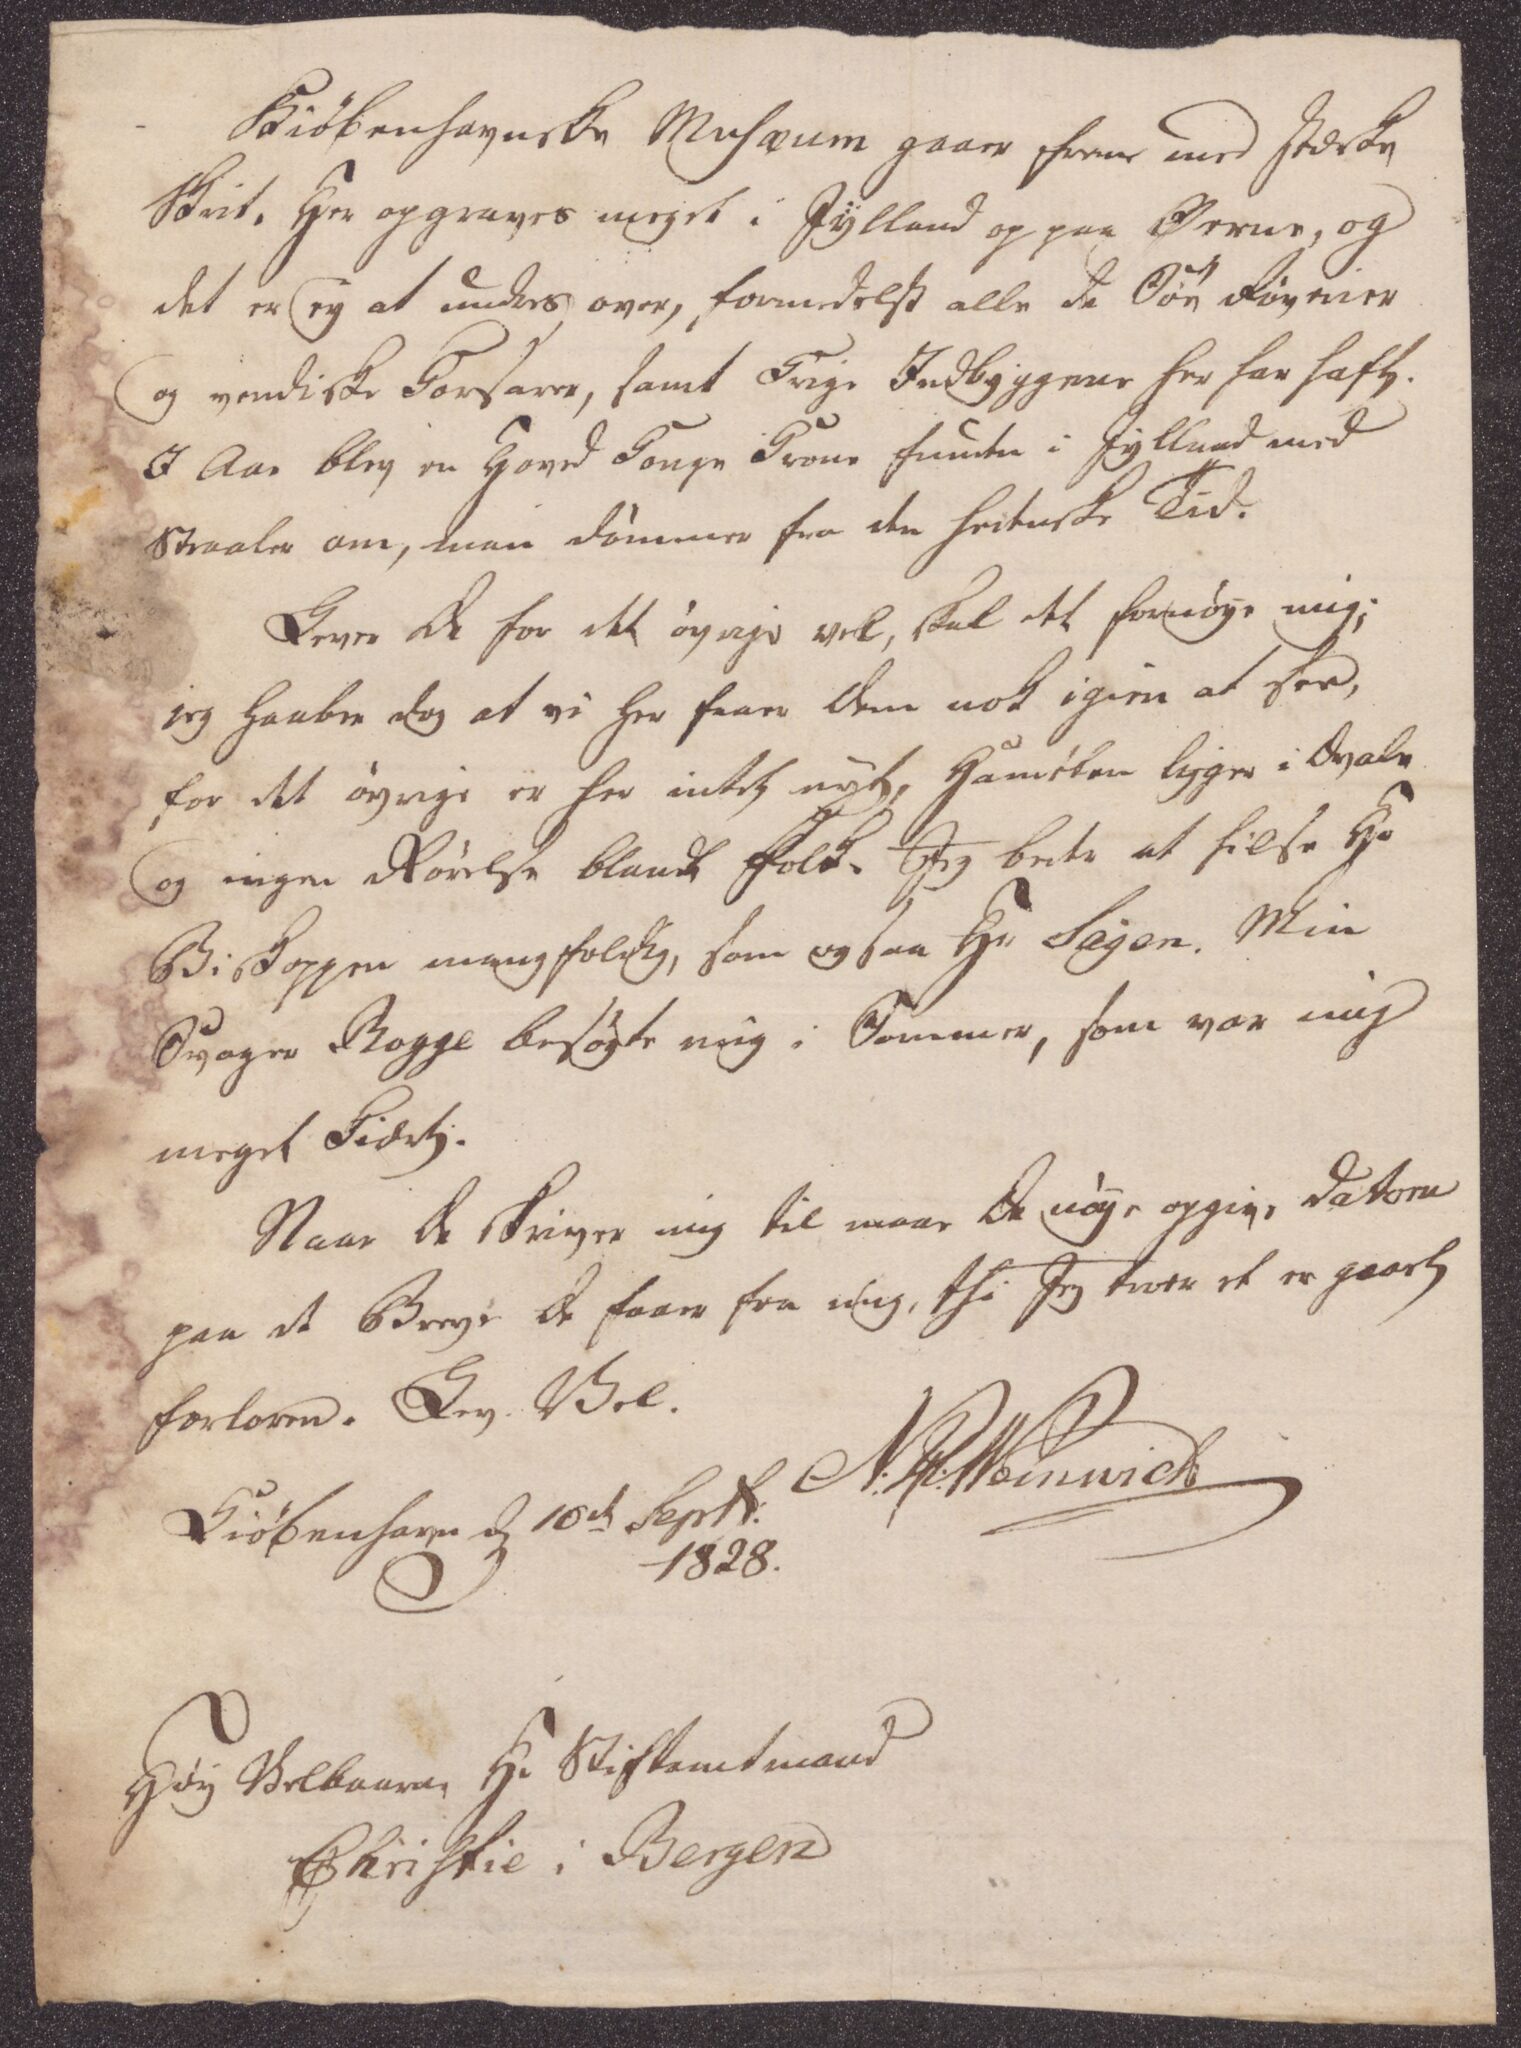 Kiöbenhavnske Musæum gaaer frem med stærke
Skrit. Her opgraves meget i Jÿlland og paa Øerne, og
det er ey at undres over, formedelst alle de Söe Röverier
og vendiske Corsarer, samt Krige Indbyggerne her har haft.
I Aar blev en Hoved Konge Krone funden i Jylland med
Straaler om, man dömmer fra den hedenske Tid.
Lever De for det övrige vel, skal det fornöye mig;
jeg haaber dog at vi her faaer Dem nok igien at see,
for det övrige er her intet nyt, Handelen ligger i Dvale
og ingen Rörelse blandt Folk. Jeg beder at hilse Hr
Biskoppen mangfoldig, som ogsaa Hr Sagen. Min
Svager Rogge besögte mig i Sommer, som var mig
meget Kiært.
Naar De skriver mig til maae De nöye opgive Datoen
paa de Breve De faaer fra mig, thi Jeg troer et er gaaet
forloren. Lev Vel.
N. H. Weinwich
Kiöbenhavn d 18de Septb:
1828.
Höy Velbaarne Hr Stiftamtmand
Christie i Bergen